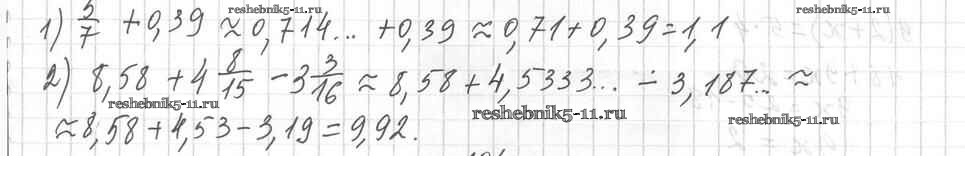 reshebnik5-11.ru reshebnik5-11.ru
1) 5/7 + 0,39 ≈ 0,714... + 0,39 ≈ 0,71 + 0,39 = 1,1
2) 8,58 + 4 8/15 - 3 3/16 ≈ 8,58 + 4,5333... ÷ 3,187.. ≈
reshebnik5-11.ru reshebnik5-11.ru reshebnik5-11.ru
≈ 8,58 + 4,53 - 3,19 = 9,92.